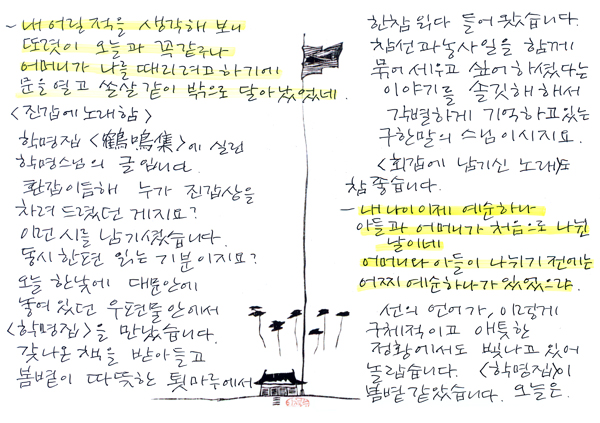 - 내 어릴 적을 생각해 보니
또렷이 오늘과 꼭 같구나
어머니가 나를 때리려고 하기에
문을 열고 쏜살같이 밖으로 달아났었네.
<진갑에 노래함>
학명집<鶴鳴集>에 실린
학명스님의 글입니다.
환갑 이듬해 누가 진갑상을
차려 드렸던 게지요?
이런 시를 남기셨습니다.
동시 한편 읽는 기분이지요?
오늘 한낮에 대문안에
놓여 있던 우편물 안에서
<학명집>을 만났습니다.
갓 나온 책을 받아들고
봄볕이 따뜻한 툇마루에서
한참 읽다 들어왔습니다.
참선과 농사일을 함께
묶어 세우고 싶어 하셨다는
이야기를 솔깃해 해서
각별하게 기억하고 있는
구한말의 스님이시지요.
<회갑에 남기신 노래>도
참 좋습니다.
- 내 나이 이제 예순하나
아들과 어머니가 처음으로 나뉜
날이네
어머니와 아들이 나뉘기 전에는
어찌 예순하나가 있었으랴.
선의 언어가, 이렇게
구체적이고 애틋한
정황에서도 빛나고 있어
놀랍습니다. <학명집>이
봄볕 같았습니다. 오늘은.